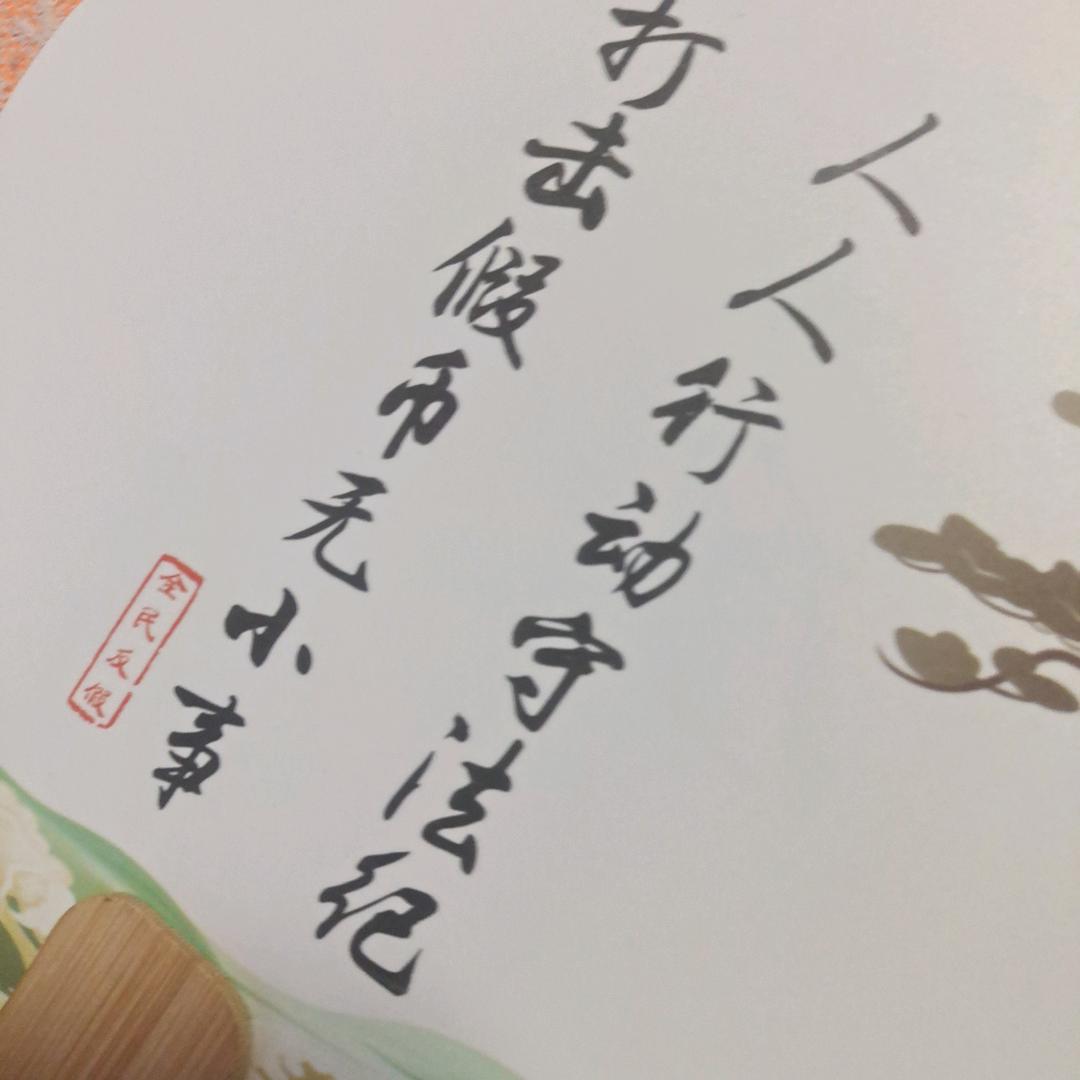 人人行动守法纪
打击假币无小事
全民反假